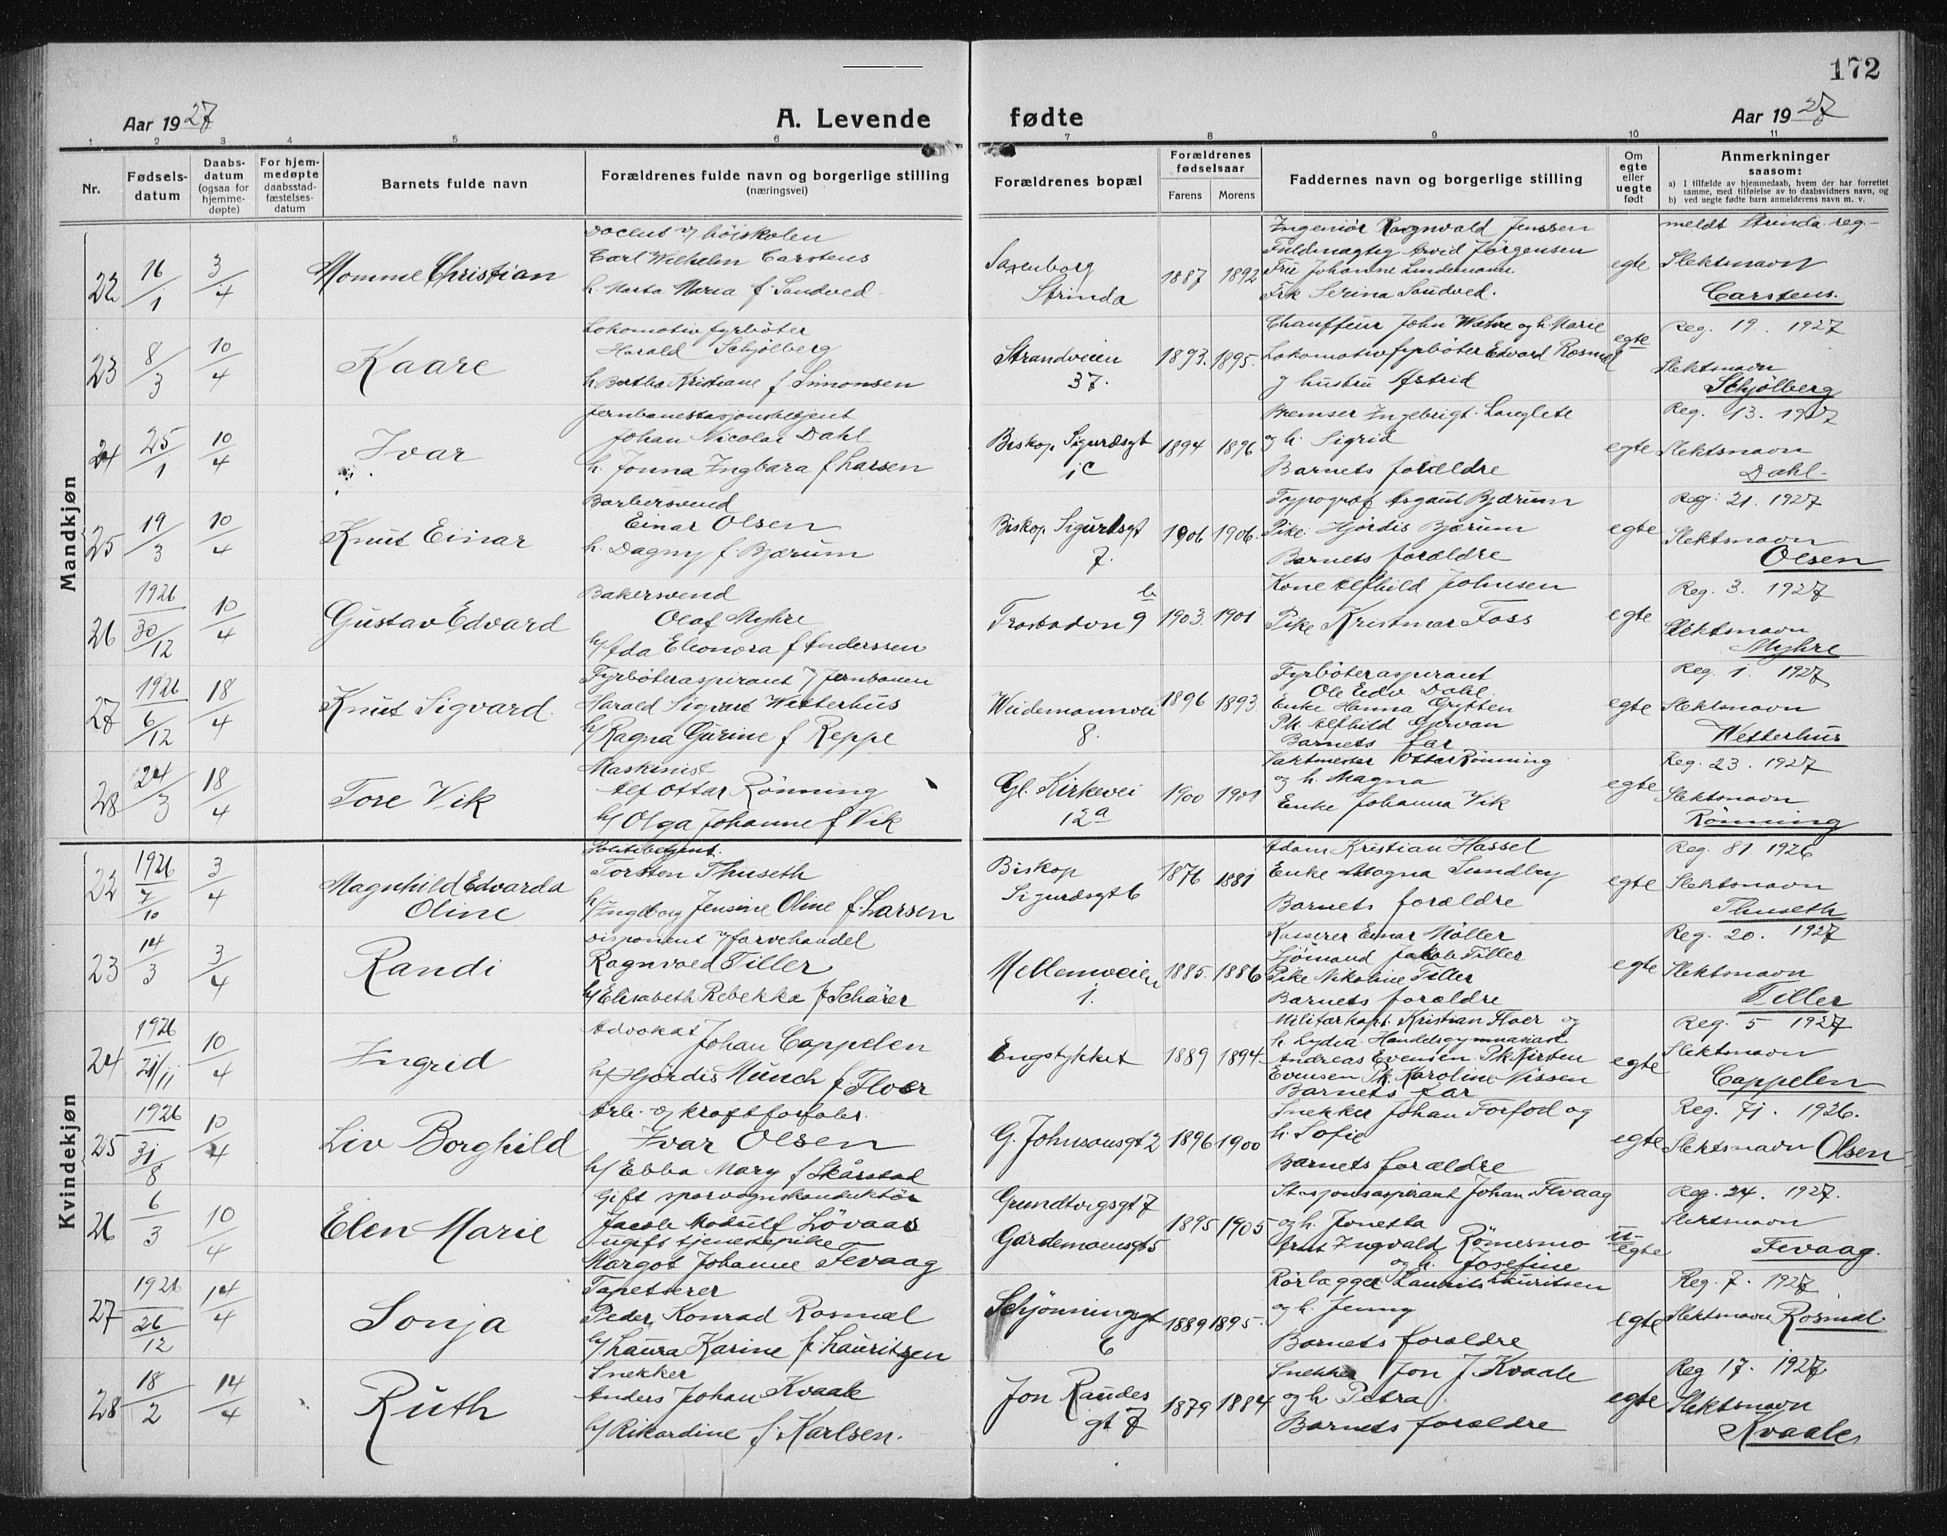 172
Aar 1927
A. Levende fødte
Aar 1927
1 2 3 4 5 6 7 8 9 10 11
Nr.
Fødselsdatum
Daabsdatum (ogsaa for hjemmedøpte)
For hjemmedøpte daabsstadfæstelsesdatum
Barnets fulde navn
Forældrenes fulde navn og borgerlige stilling (næringsvei)
Forældrenes bopæl
Forældrenes fødselsaar
Farens Morens
Faddernes navn og borgerlige stilling
Om egte eller uegte født
Anmerkninger saasom:
a) I tilfælde av hjemmedaab, hvem der har forrettet samme, med tilføielse av to daabsvidners navn, og
b) ved uegte fødte barn anmelderens navn m. v.
Mandkjøn
22 16/1 3/4 Momme Christian
Docent v/ høiskolen
Carl Wilhelm Carstens
h. Marta Maria f. Sandved
Saxenborg
Strinda
1887 1892
Ingeniør Ragnvald Jenssen
Fuldmægtig Arvid Jørgensen
Fru Johanne Lindemann
Frk Serina Sandved.
egte
meldt Strinda reg-
Slektsnavn
Carstens.
23 8/3 10/4 Kaare
Lokomotivfyrbøter
Harald Schjølberg
h. Bertha Kristiane f. Simonsen
Strandveien
37.
1893. 1895.
Chauffeur John Wæhre og h. Marie
Lokomotivfyrbøter Edvard Rosmæl
og hustru Astrid
egte
Reg. 19. 1927
Slektsnavn
Schjølberg
24 25/1 10/4 Ivar
Jernbanestasjonsbetjent
Johan Nicolai Dahl
h. Jonna Ingbara f. Larsen
Biskop Sigurdsgt
1c
1894 1896
Bremser Ingebrigt Langlete
og h. Sigrid
Barnets forældre
egte
Reg. 13. 1927
Slektsnavn
Dahl
25 19/3 10/4 Knut Einar
Barbersvend
Einar Olsen
h. Dagny f. Bjærum
Biskop Sigurdsgt
7.
1906 1906.
Typograf Asgaut Bjærum
Pike Hjørdis Bjærum
Barnets forældre
egte
Reg. 21. 1927
Slektsnavn
Olsen
26 1926 30/12 10/4 Gustav Edvard
Bakersvend
Olaf Myhre
h/ Ada Eleonora f Anderssen
9 b
1903. 1901
Kone Alfhild Johnsen
Pike Kristmar Foss
egte
Reg. 3. 1927
Slektsnavn
Myhre
27 1926 6/12 18/4 Knut Sigvard.
Fyrbøteraspirant v/ Jernbanen
Harald Sigvart Wetterhus
h/ Ragna Gurine f Reppe
Weidemannvei
8.
1896 1893.
Fyrbøteraspirant
Ole Edv Dahl.
Enke Hanna Grytten
Pk. Alfhild Gjervan
Barnets far
egte
Reg. 1 1927
Slektsnavn
Wetterhus
28 24/3 18/4 Tore Vik
Maskinist
Alf Ottar Rønning
h/ Olga Johanne f Vik
Gl. Kirkevei
12a
1900 1901
Vaktmester Ottar Rønning
og h. Magna
Enke Johanna Vik
egte
Reg. 23. 1927
Slektsnavn
Rønning
Kvindekjøn
22 1926 7/10 3/4 Magnhild Edvarda
Oline
Politibetjent.
Torsten Thuseth
h/ Ingeborg Jensine Oline f. Larsen
Biskop
Sigurdsgt 6
1876 1881
Adam Kristian Hassel
Enke Magna Sundby
Barnets forældre
egte
Reg. 81 1926
Slektsnavn
Thuseth
23 14/3 3/4 Randi
Disponent v/ farvehandel
Ragnvald Tiller
h/ Elisabeth Rebekka f Schärer
Mellemveien
1.
1885. 1886
Kasserer Einar Møller
Sjømand Jakob Tiller
Pike Nikoline Tiller
Barnets forældre
egte
Reg. 20. 1927
Slektsnavn
Tiller
24 1926 21/11 10/4 Ingrid
Advokat
Johan Cappelen
h/ Hjørdis Münch f Floer
Engstykket
1889 1894
Militærkapt. Kristian Floer og
h. Lydia Handelsgymnasiast
Andreas Evensen. Pk Kirsten
Evensen Pk. Karoline Nissen
Barnets far
egte
Reg. 5 1927
Slektsnavn
Cappelen
25 1926 31/8 10/4 Liv Borghild
Arb. og kraftforfabr.
Ivar Olsen
h/ Ebba Mary f Skårstad
G. Johnsonsgt 2
1896 1900
Snekker Johan Forfod og
h. Sofie
Barnets forældre
egte
Reg. 71. 1926.
Slektsnavn Olsen
26 6/3 10/4 Elen Marie
Gift sporvognskonduktør
Jacob Løvaas
ugift tjenestepike
Margot Johanne Fevaag
Grundtvigsgt 7
Gardemoensgt 5
1895 1905
Stasjonsaspirant Johan Fevaag
og h. Jonetta
Arnt Ingvald Rømesmo
og h. Josefine
u-
egte
Reg. 24. 1927.
Slektsnavn
Fevaag.
27 1926 26/12 14/4 Sonja
Tapetserer
Peder Konrad Rosmæl
h/ Laura Karine f. Lauritsen
Schjønningsgt
6
1889 1895.
Rørlægger Laurits Lauritsen
og h. Jenny
Barnets forældre
egte
Reg. 7. 1927
Slektsnavn Rosmæl
28 18/2 14/4 Ruth
Snekker
Anders Johan Kvaale
h/ Rikardine f. Karlsen.
Jon Raudes
gt 7
1879 1884
Snekker Jon J. Kvaale
og h Petra
Barnets forældre
egte
Reg 17. 1927
Slektsnavn
Kvaale